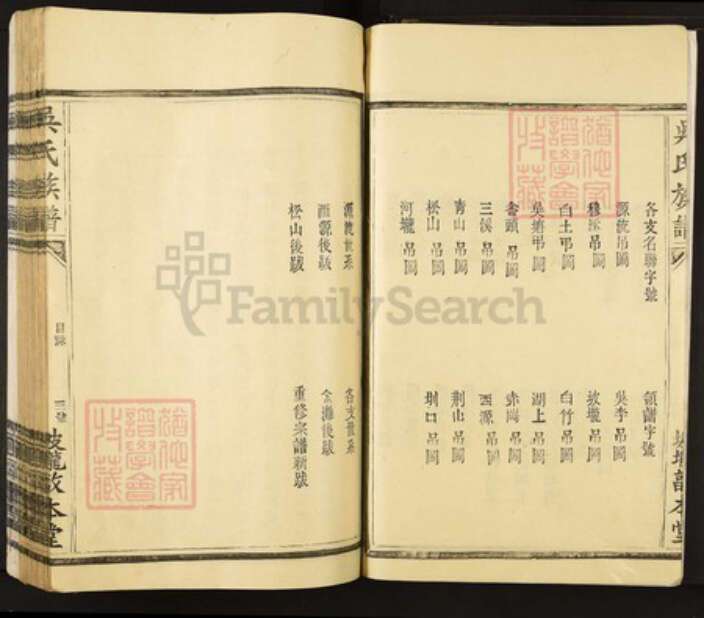 吳氏族譜
各支名聯字號
領譜字號
源流吊圖
吳李吊圖
穆派吊圖
坡壠吊圖
白土吊圖
白竹吊圖
吳塘吊圖
湖上吊圖
吊圖
赤岡吊圖
三溪吊圖
西源吊圖
青山吊圖
荆山吊圖
松山吊圖
圳口吊圖
河壠吊圖
敦本堂
源流世系
各支世系
源後跋
金灘後跋
松山後跋
重修宗譜新跋
吳氏族譜
目錄
三號
坡壠敦本堂
猶他家譜學會收藏
猶他家譜學會收藏
FamilySearch